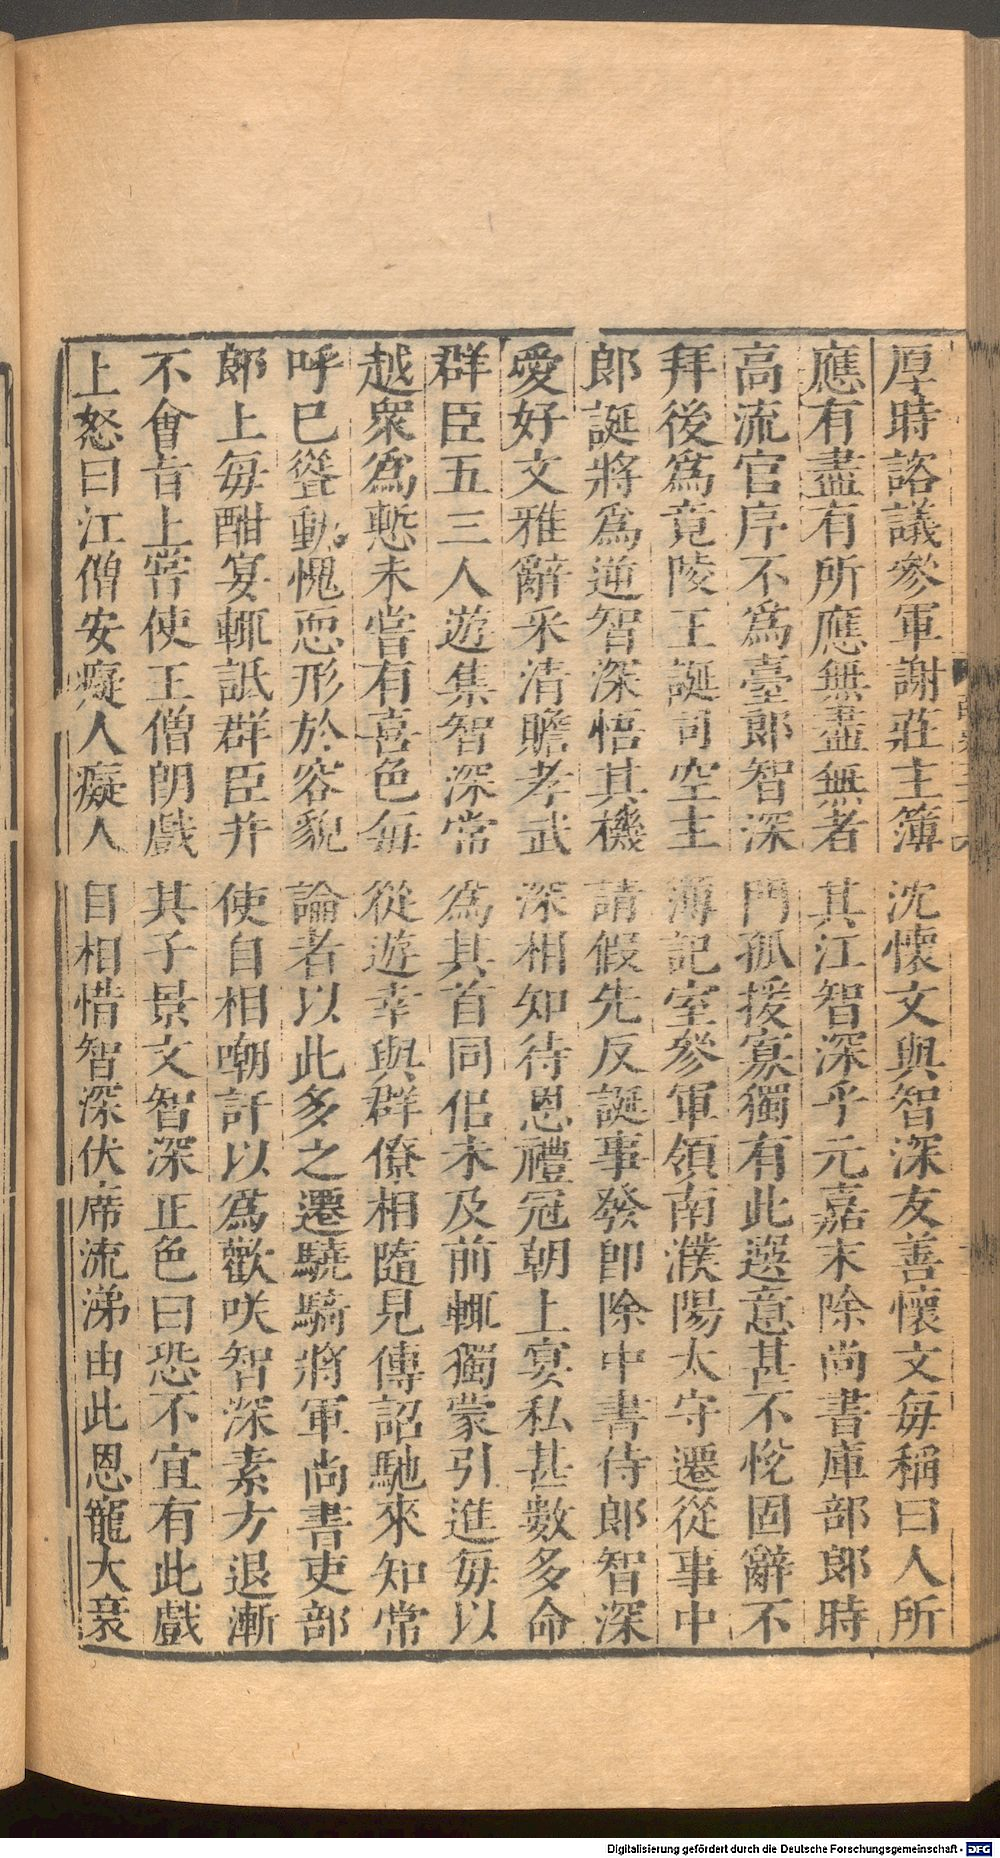 厚時諮議參軍謝莊主簿沈懷文與智深友善懷文每稱曰人所
應有盡有所應無盡無者其江智深乎元嘉末除尚書庫部郎時
高流官序不爲臺郎智深門孤援寡獨有此選意甚不悅固辭不
拜後爲竟陵王誕司空主簿記室參軍領南濮陽太守遷從事中
郎誕將爲逆智深悟其機請假先反誕事發即除中書侍郎智深
愛好文雅辭采清贍孝武深相知待恩禮冠朝上宴私甚數多命
群臣五三人遊集智深常爲其首同侶未及前輒獨蒙引進每以
越衆爲慙未嘗有喜色每從遊幸與群僚相隨見傳詔馳來知常
呼已聳動愧恧形於容貌論者以此多之遷驍騎將軍尚書吏部
郎上每酣宴輒詆群臣并使自相嘲訐以爲歡咲智深素方退漸
不會旨上嘗使王僧朗戲其子景文智深正色曰恐不宜有此戲
上怒曰江僧安癡人癡人自相惜智深伏席流涕由此恩寵大衰
Digitalisierung gefördert durch die Deutsche Forschungsgemeinschaft - DFG